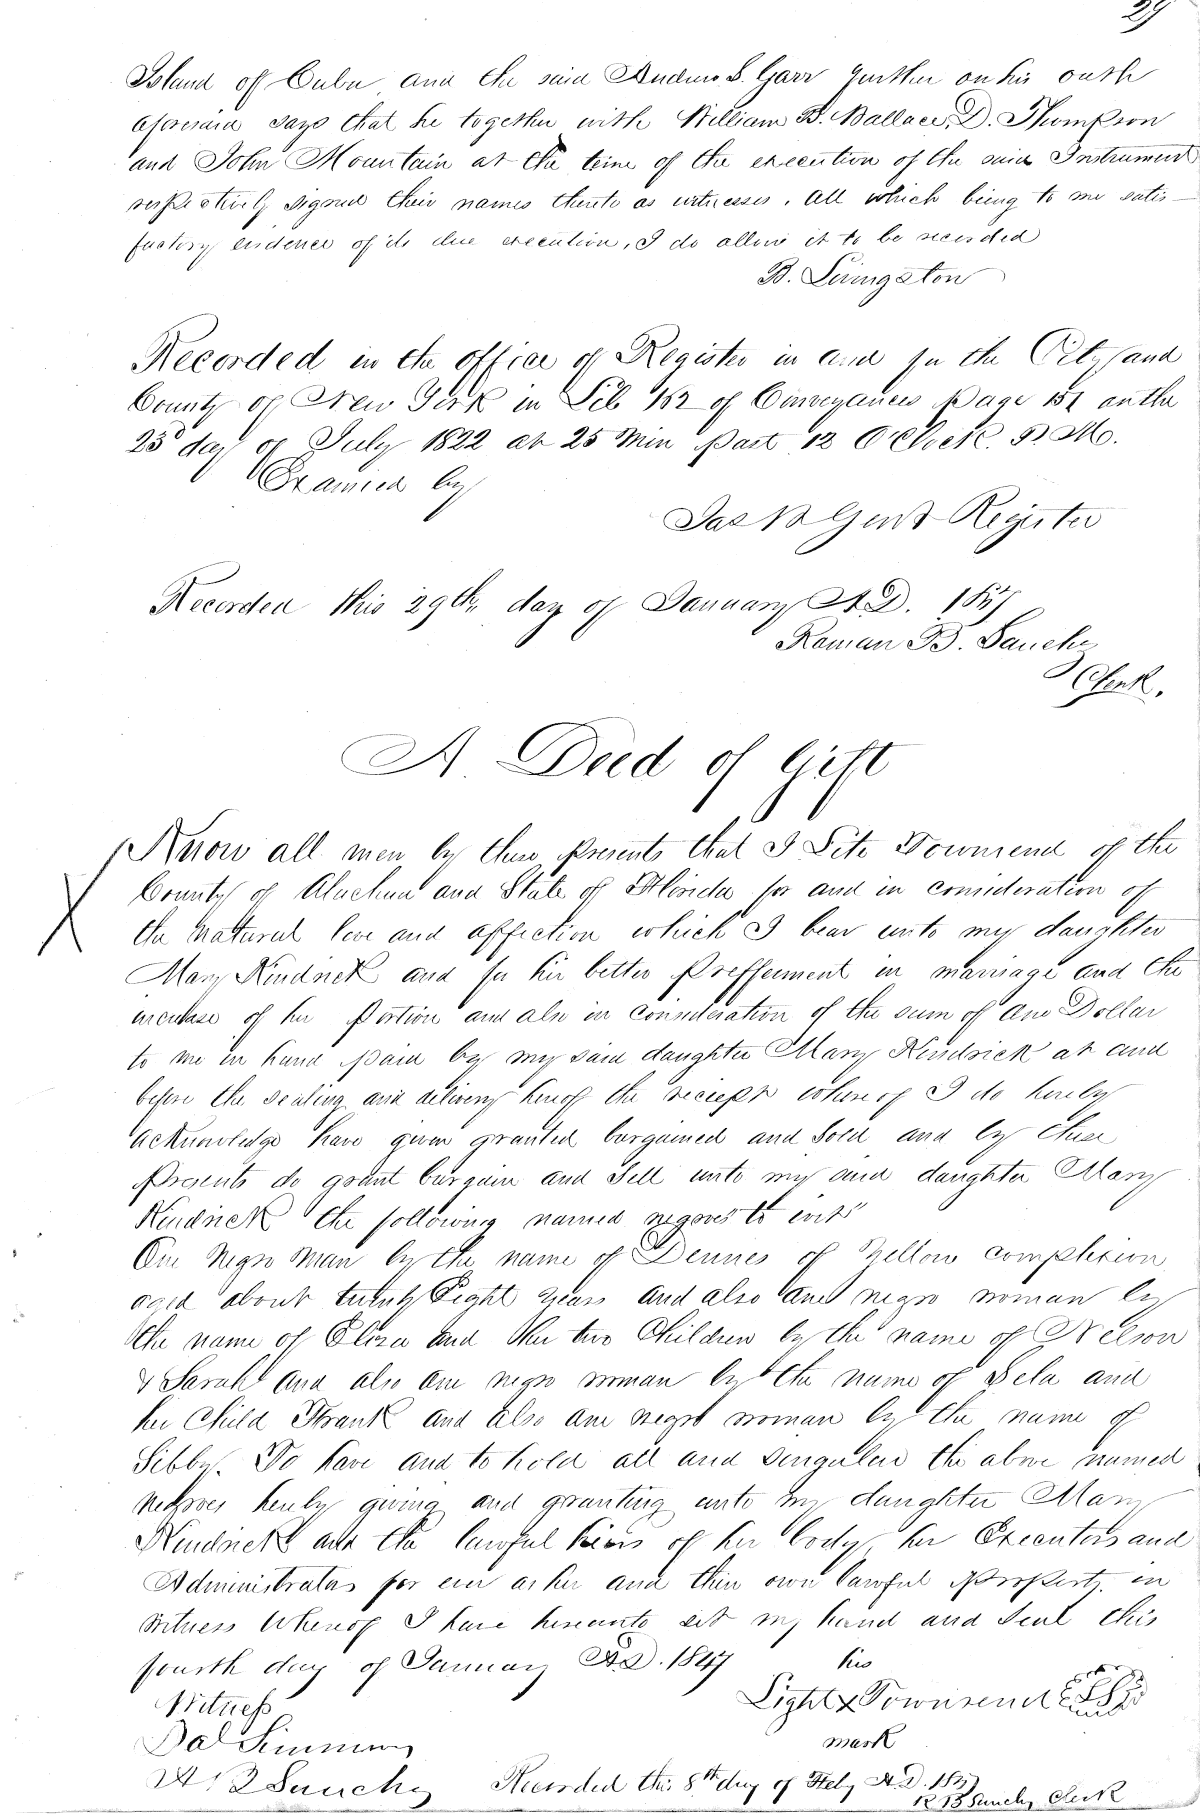 29
Island of Cuba and the said Andrew S. Garr further on his oath
aforesaid says that he together with William B. Wallace, D. Thompson
and John Mountain at the time of the execution of the said Instrument
respectively signed their names thereto as witnesses. All which being to me satis-
factory evidence of its due execution, I do allow it to be recorded
B. Livingston
Recorded in the office of Register in and for the City and
County of New York in Lib 162 of Conveyances page 151 on the
23d day of July 1822 at 25 Min past 12 O'Clock P. M.
Examined by
Jas W Gent Register
Recorded this 29th day of January A.D. 1847
Roman B. Sanchez
Clerk.
A Deed of Gift
Know all men by these presents that I Lite Townsend of the
County of Alachua and State of Florida for and in consideration of
the natural love and affection which I bear unto my daughter
Mary Kindrick and for her better Prefferment in marriage and the
increase of her Portion and also in consideration of the sum of one Dollar
to me in hand paid by my said daughter Mary Kindrick at and
before the sealing and delivery hereof the reciept whereof I do hereby
acknowledge have given granted bargained and Sold and by these
Presents do grant bargain and Sell unto my said daughter Mary
Kindrick the following named negroes to wit"
One Negro Man by the name of Dennes of Yellow complexion
aged about twenty Eight years and also one negro woman by
the name of Eliza and her two Children by the name of Nelson
& Sarah and also one negro woman by the name of Sela and
her Child Frank and also one negro woman by the name of
Sibby. To have and to hold all and singular the above named
negroes hereby giving and granting unto my daughter Mary
Kindrick and the lawful heirs of her body, her Executors and
Administrators for ever as her and their own lawful property. in
witness whereof I have hereunto set my hand and Seal this
fourth day of January A.D. 1847
his
Witness
Light X Townsend LS
mark
Dal Simmons
A B Sanchez
Recorded this 8th day of Feby A.D. 1847
R B Sanchez Clerk